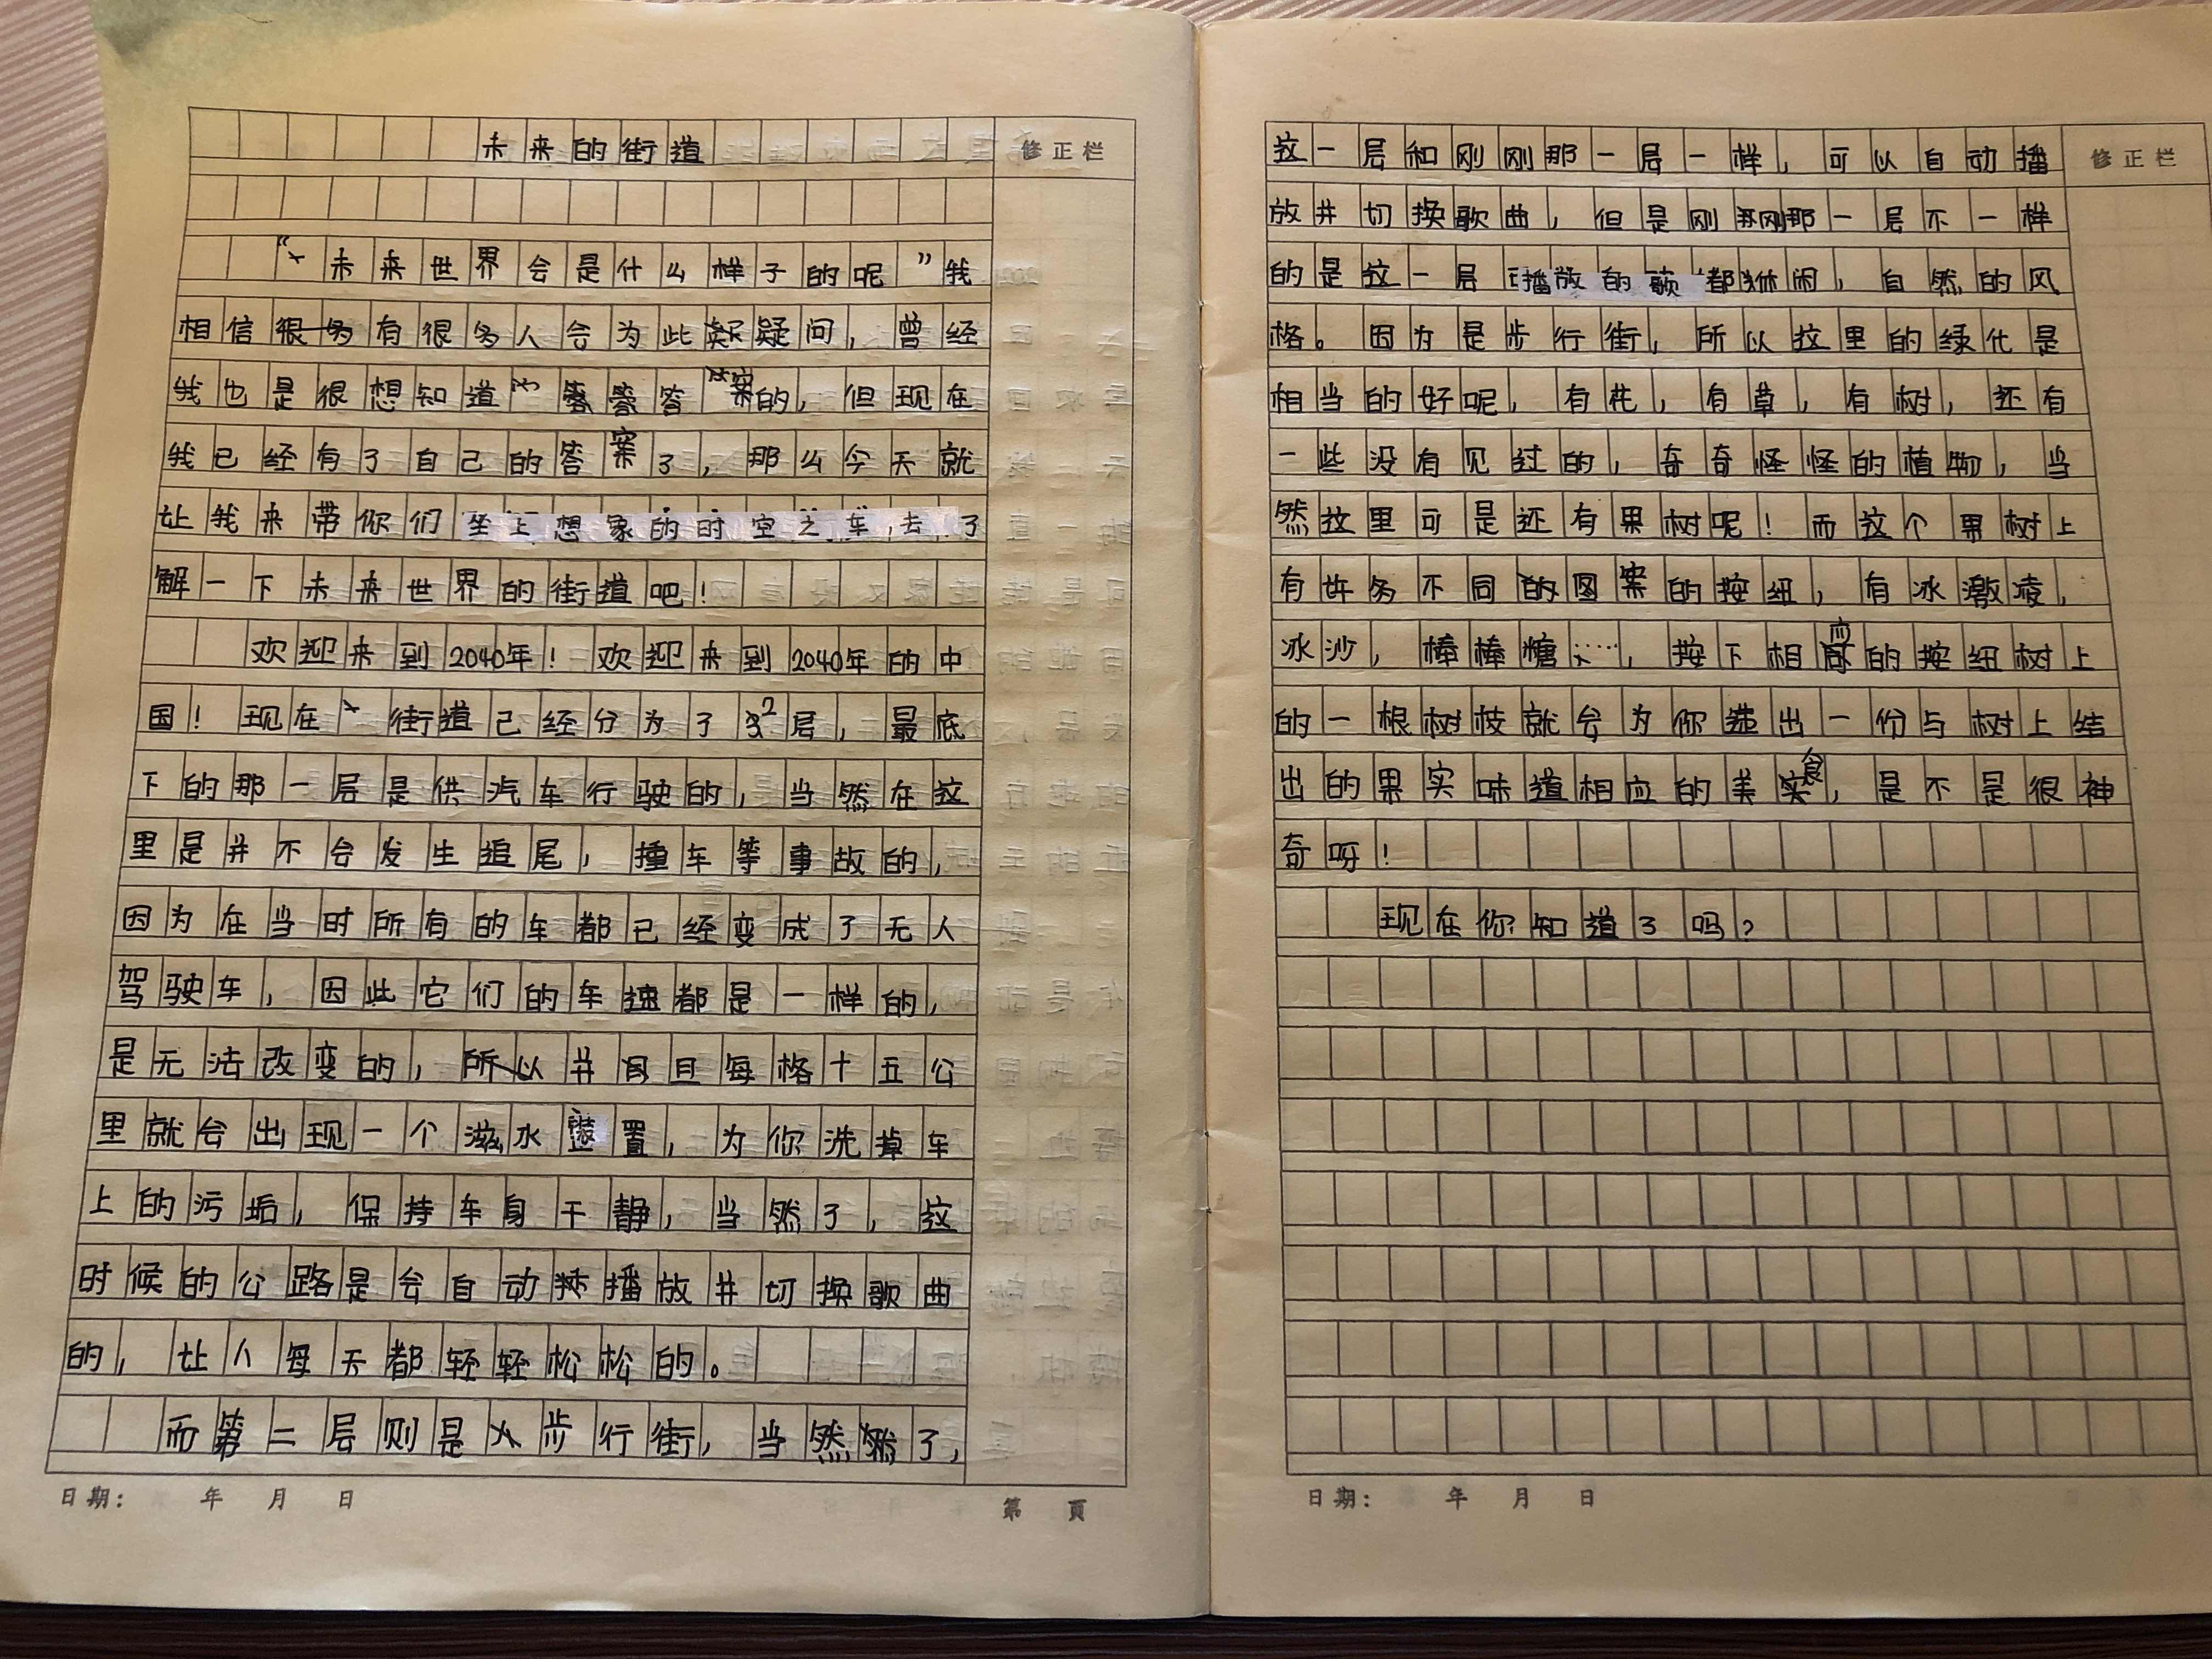 未来的街道
修正栏
“未来世界会是什么样子的呢”我
相信有很多人会为此疑问，曾经
我也是很想知道答案的，但现在
我已经有了自己的答案了，那么今天就
让我来带你们坐上想象的时空之车，去了
解一下未来世界的街道吧！
欢迎来到2040年！欢迎来到2040年的中
国！现在街道已经分为了2层，最底
下的那一层是供汽车行驶的，当然在这
里是并不会发生追尾，撞车等事故的，
因为在当时所有的车都已经变成了无人
驾驶车，因此它们的车速都是一样的，
是无法改变的，并且每格十五公
里就会出现一个滋水装置，为你洗掉车
上的污垢，保持车身干静，当然了，这
时候的公路是会自动播放并切换歌曲
的，让人每天都轻轻松松的。
而第二层则是步行街，当然了，
日期： 年 月 日
第 页
这一层和刚刚那一层一样，可以自动播
修正栏
放并切换歌曲，但是刚刚那一层不一样
的是这一层播放的歌都休闲，自然的风
格。因为是步行街，所以这里的绿化是
相当的好呢，有花，有草，有树，还有
一些没有见过的，奇奇怪怪的植物，当
然这里可是还有果树呢！而这个果树上
有许多不同的图案的按纽，有冰激凌，
冰沙，棒棒糖……，按下相应的按纽树上
的一根树枝就会为你造出一份与树上结
出的果实味道相应的美食，是不是很神
奇呀！
现在你知道了吗？
日期： 年 月 日